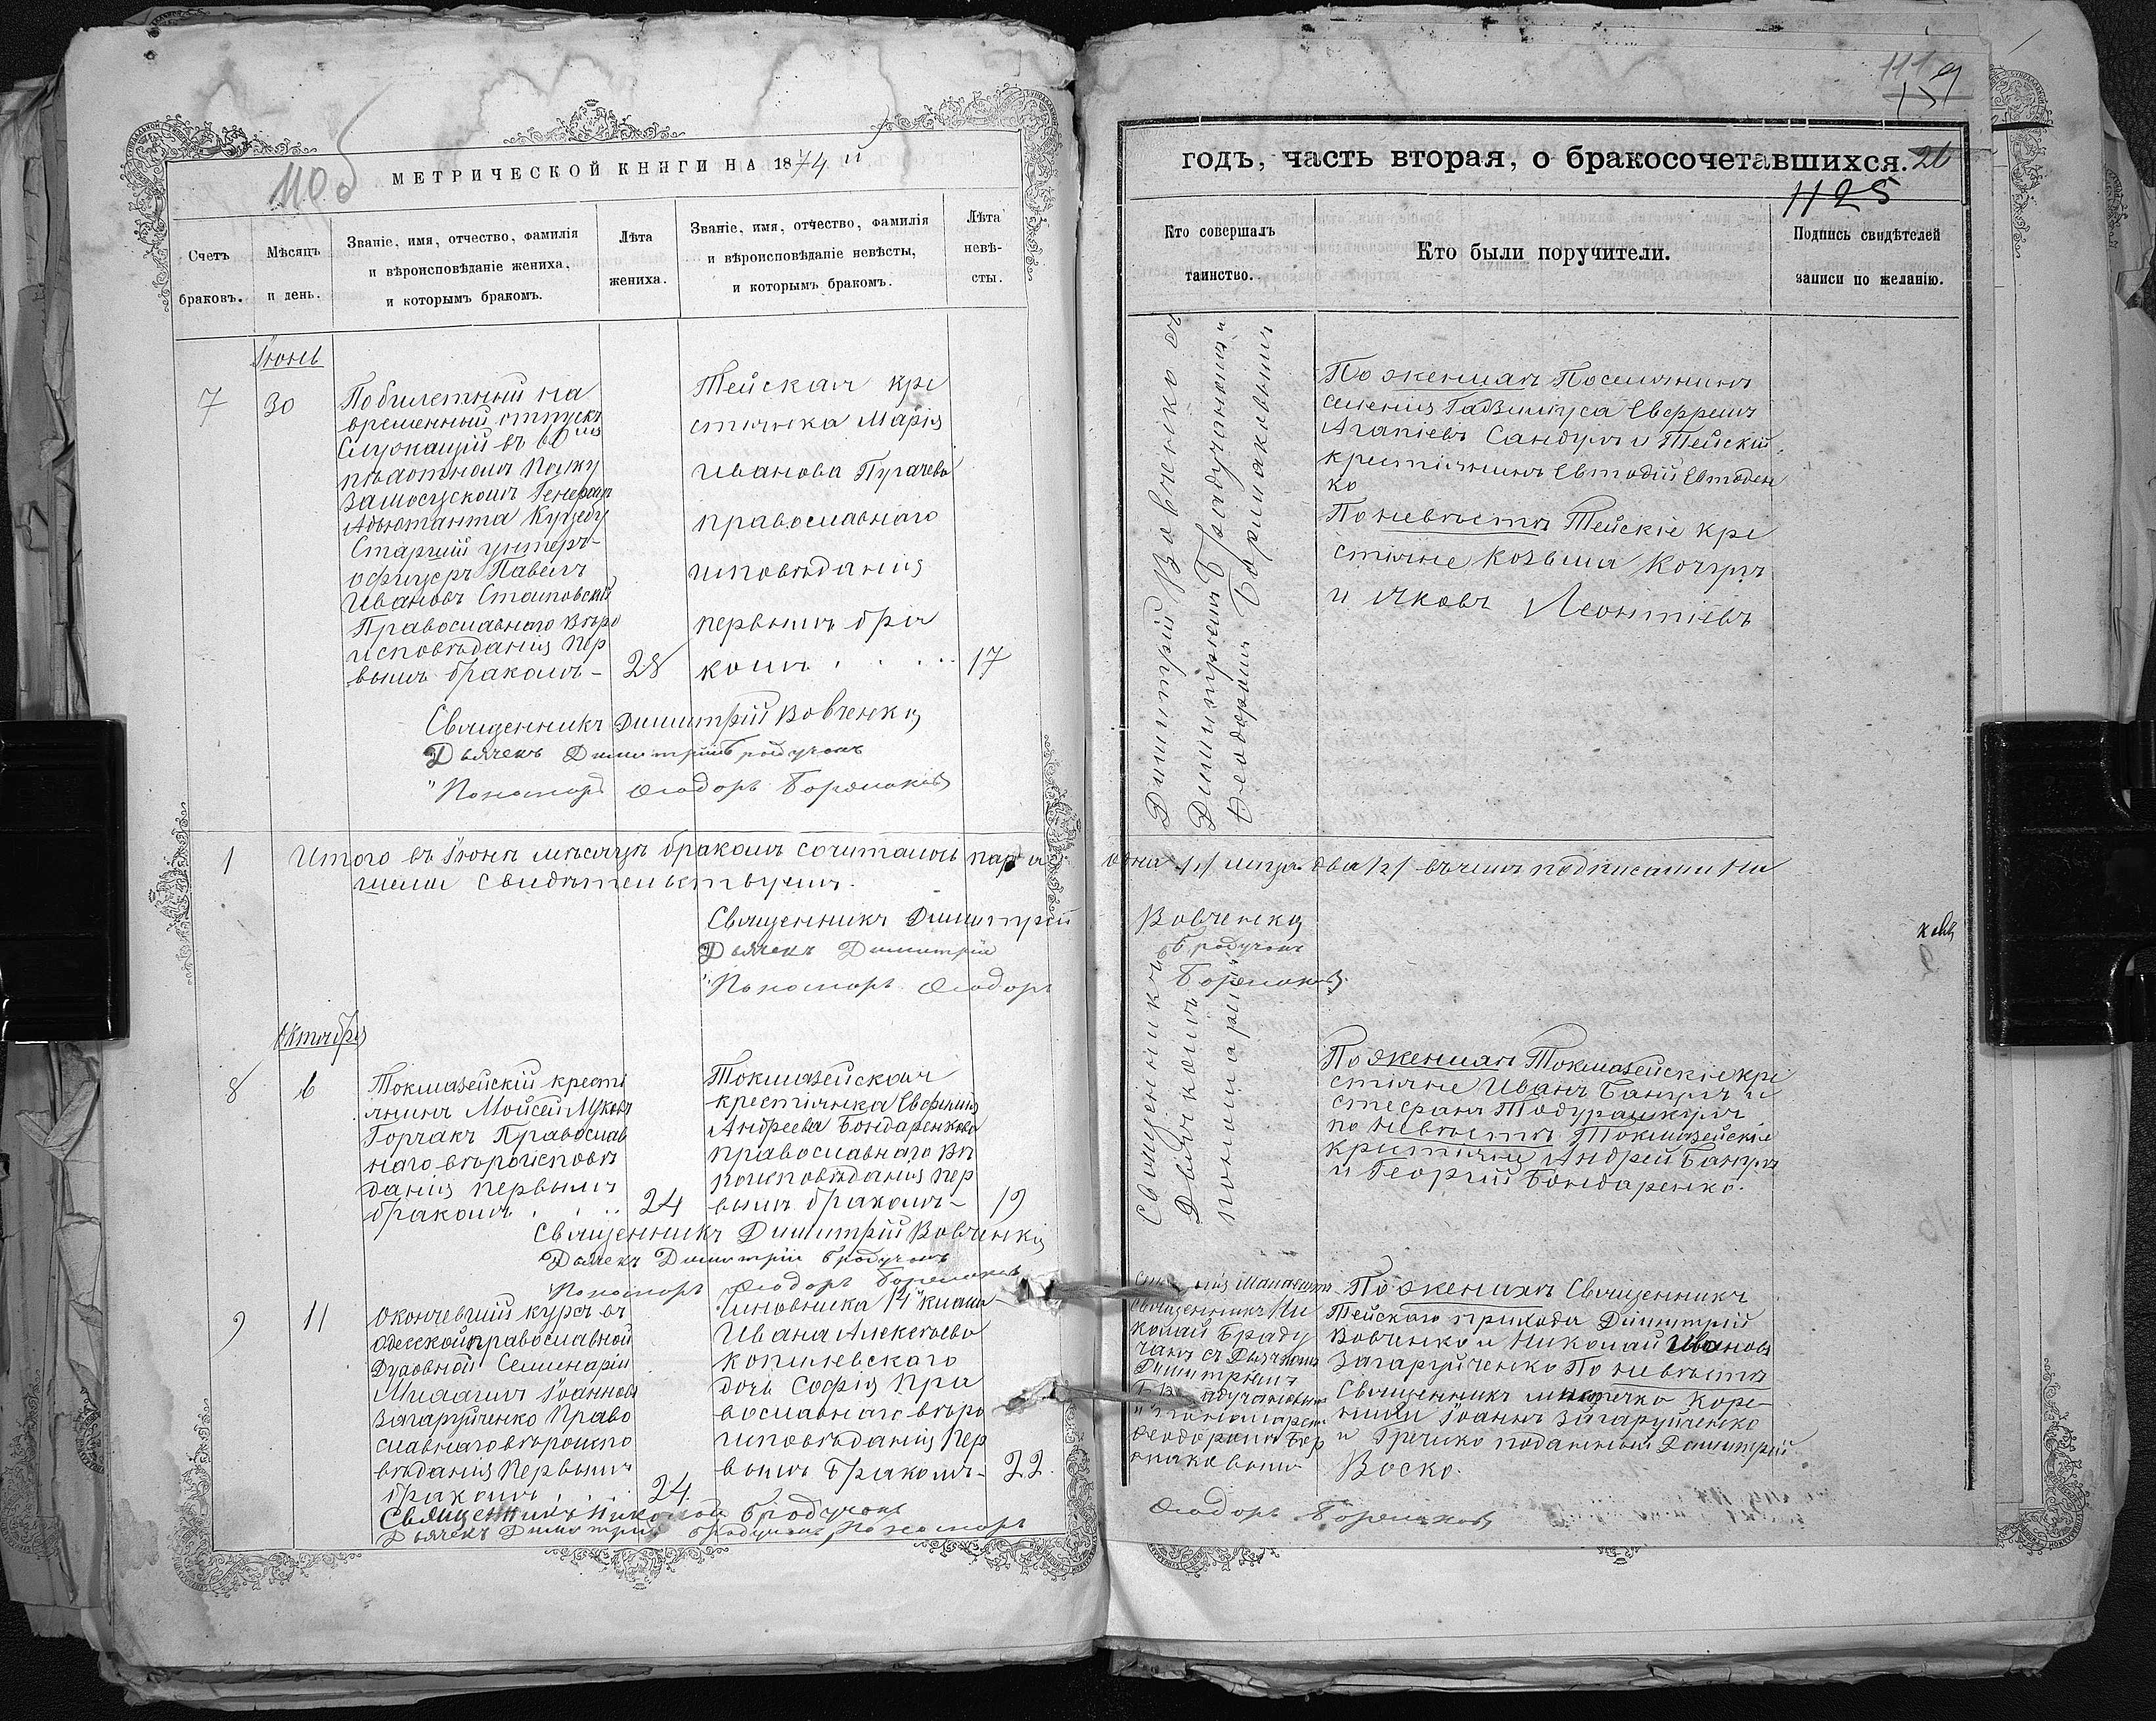 110 об
МЕТРИЧЕСКОЙ КНИГИ НА 1874 й
Счетъ браковъ.
Мѣсяцъ и день.
Званіе, имя, отчество, фамилія
и вѣроисповѣданіе жениха,
и которымъ бракомъ.
Лѣта
жениха.
Званіе, имя, отчество, фамилія
и вѣроисповѣданіе невѣсты,
и которымъ бракомъ.
Лѣта
невѣ-
сты.
Іюнь
7
30
По билетный на
временный отпускъ
Служащій въ
пѣхотномъ Полку
Замосцскомъ Генералъ
Адьютанта
Старшій унтеръ-
офицеръ Павелъ
Ивановъ
Православнаго Вѣро
исповѣданія Пер
вымъ бракомъ-
28
Тейская кре
стьянка Марія
Иванова Пугачева
православнаго
исповѣданія
первымъ бра
комъ
17
Священникъ Димитрій Вовченко
Дьячекъ Димитрій Брадучанъ
Пономоръ Ѳеодоръ Бормаковъ
1
Итого въ Іюнѣ мѣсяцѣ бракомъ сочиталось пара
шемъ свидѣтельствуемъ.
Священникъ Димитрій
Дьячекъ Димитрій
Пономоръ Ѳеодоръ
Октябрь
8
6
Токмазейскій кресть
янинъ Мойсей
Горчакъ Православ
наго вѣроисповѣ
данія первымъ
бракомъ
24
Токмазейская
крестьянка Евфимія
Андреева Бондаренкова
православнаго Вѣ
роисповѣданія пер
вымъ бракомъ-
19
Священникъ Димитрій Вовченко
Дьячекъ Димитрій Брадучанъ
Пономоръ Ѳеодоръ Бормаковъ
9
11
Окончевшій курсъ въ
Одесской православной
Духовной Семинаріи
Іоанновъ
Загаруйченко Право
славнаго вѣроиспо
вѣданія Первымъ
бракомъ
24.
Чиновника 14 класа
Ивана Алексѣева
дочь Софія Пра
вославнаго вѣро
исповѣданія Пер
вымъ Бракомъ-
22.
Священникъ Николай Брадучанъ
Дьячекъ Димитрій Брадучанъ Пономоръ
111
159
годъ, часть вторая, о бракосочетавшихся.
26
1125
Кто совершалъ
таинство.
Кто были поручители.
Подпись свидѣтелей
записи по желанію.
Димитрій Вовченко съ
Димитріемъ Брадучаномъ и
Ѳеодоромъ Бормаковымъ
По женихѣ Поселянинъ
Агапіевъ Сандулъ и Тейскій
крестьянинъ Евтодій Евтоден
ко
По невѣстѣ Тейскіе кре
стьяне Козьма
и Яковъ Леонтіевъ
одна /1/ лица два /2/ въ чемъ подписаніемъ
Вовченко
Брадучанъ
Бормаковъ
Священникъ
Дьячкомъ
пономаремъ
По женихѣ Токмазейскіе кре
стьяне Иванъ Банулъ и
Стефанъ
по невѣстѣ Токмазейскіе
крестьяне Андрей Банулъ
и Георгій Бондаренко.
Священникъ Ни
колай Браду
чанъ съ Дьячкомъ
Димитріемъ
Брадучаномъ
Пономаремъ
Ѳеодоромъ Бор
маковымъ
По женихѣ Священникъ
Тейскаго прихода Димитрій
Вовченко и Николай Ивановъ
Загаруйченко По невѣстѣ
Священникъ
Іоаннъ Загаруйченко
и Греческо подданный Димитрій
Воско.
Ѳеодоръ Бормаковъ